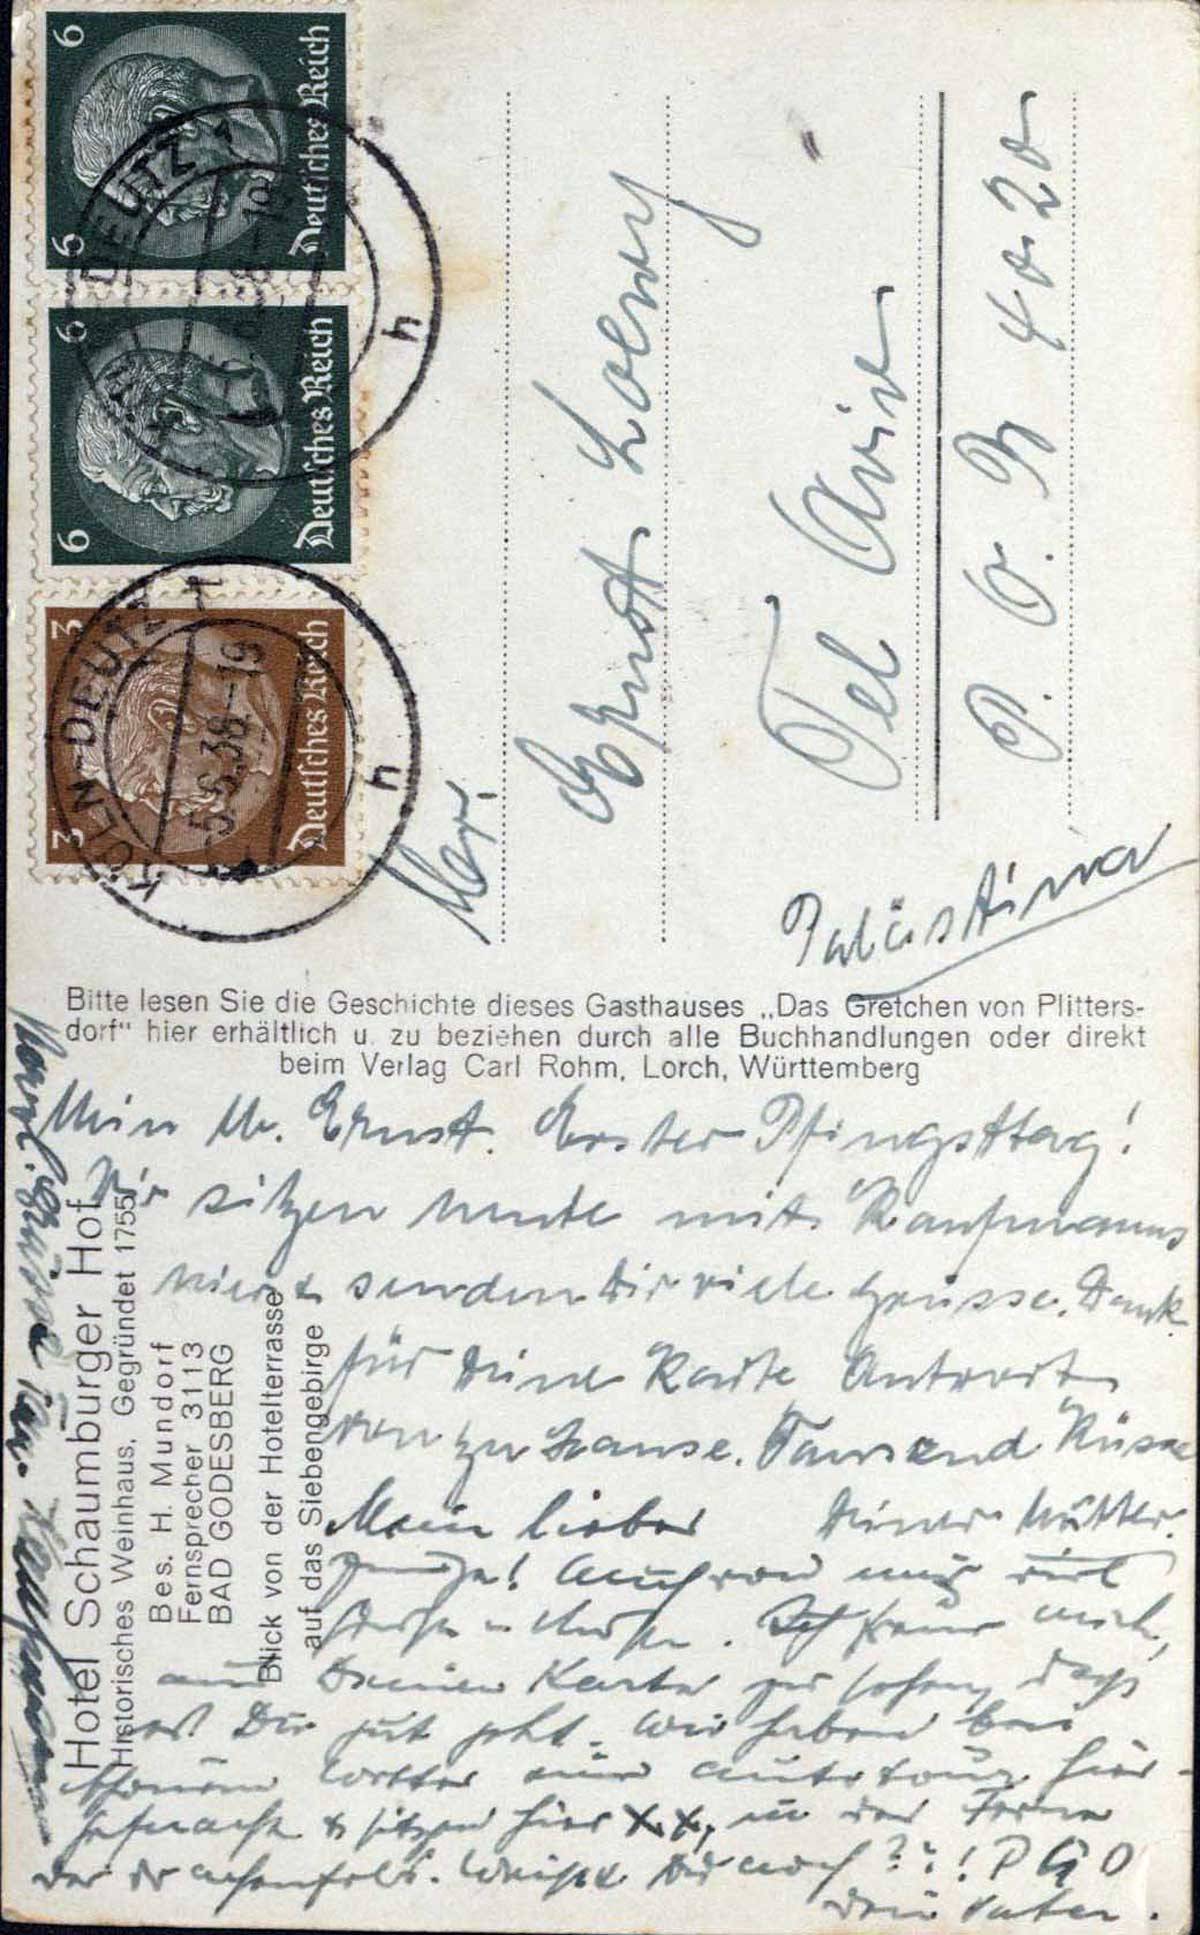 6 6
Deutsches Reich
6 6
Deutsches Reich
3 3
Deutsches Reich
DEUTZ
h
KÖLN-DEUTZ 1
5.6.38-19
h
Ernst Loewy
Tel Aviv
P. O. B 4020
Palästina
Bitte lesen Sie die Geschichte dieses Gasthauses „Das Gretchen von Plitters-
dorf" hier erhältlich u. zu beziehen durch alle Buchhandlungen oder direkt
beim Verlag Carl Rohm, Lorch, Württemberg
Hotel Schaumburger Hof
Historisches Weinhaus, Gegründet 1755
Bes. H. Mundorf
Fernsprecher 3113
BAD GODESBERG
Blick von der Hotelterrasse
auf das Siebengebirge
Mein lb. Ernst. Erster Pfingsttag!
Wir sitzen heute mit Kaufmanns
hier & senden Dir viele Grüsse. Dank
für Deine Karte Antwort
von zu Hause. Tausend Küsse
Deiner Mutter.
Mein lieber
Junge! Auch von mir viel
Grüße u. Küsse. Ich freue mich,
aus Deiner Karte zu sehen, dass
es Dir gut geht. Wir haben bei
schönem Wetter eine Autotour hier
gemacht & sitzen hier XX, in der Ferne
der Drachenfels. Weisst Du noch ??! P G O
Dein Vater.
Herzl. Grüsse Fam. Kaufmann